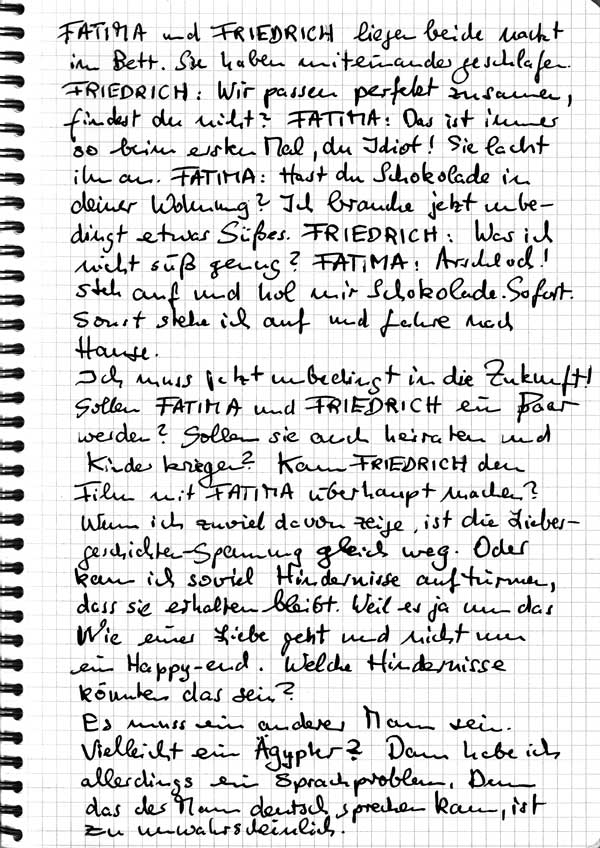 FATIMA und FRIEDRICH liegen beide nackt
im Bett. Sie haben miteinander geschlafen.
FRIEDRICH: Wir passen perfekt zusammen,
findest du nicht? FATIMA: Das ist immer
so beim ersten Mal, du Idiot! Sie lacht
ihn an. FATIMA: Hast du Schokolade in
deiner Wohnung? Ich brauche jetzt unbe-
dingt etwas Süßes. FRIEDRICH: Was ich
nicht süß genug? FATIMA: Arschloch!
Steh auf und hol mir Schokolade. Sofort.
Sonst stehe ich auf und fahre nach
Hause.
Ich muss jetzt unbedingt in die Zukunft!
Sollen FATIMA und FRIEDRICH ein Paar
werden? Sollen sie auch heiraten und
Kinder kriegen? Kann FRIEDRICH den
Film mit FATIMA überhaupt machen?
Wenn ich zuviel davon zeige, ist die Liebes-
geschichten-Spannung gleich weg. Oder
kann ich soviel Hindernisse auftürmen,
dass sie erhalten bleibt. Weil es ja um das
Wie einer Liebe geht und nicht um
ein Happy-end. Welche Hindernisse
könnten das sein?
Es muss ein anderer Mann sein.
Vielleicht ein Ägypter? Dann habe ich
allerdings ein Sprachproblem. Denn
das der Mann deutsch sprechen kann, ist
zu unwahrscheinlich.